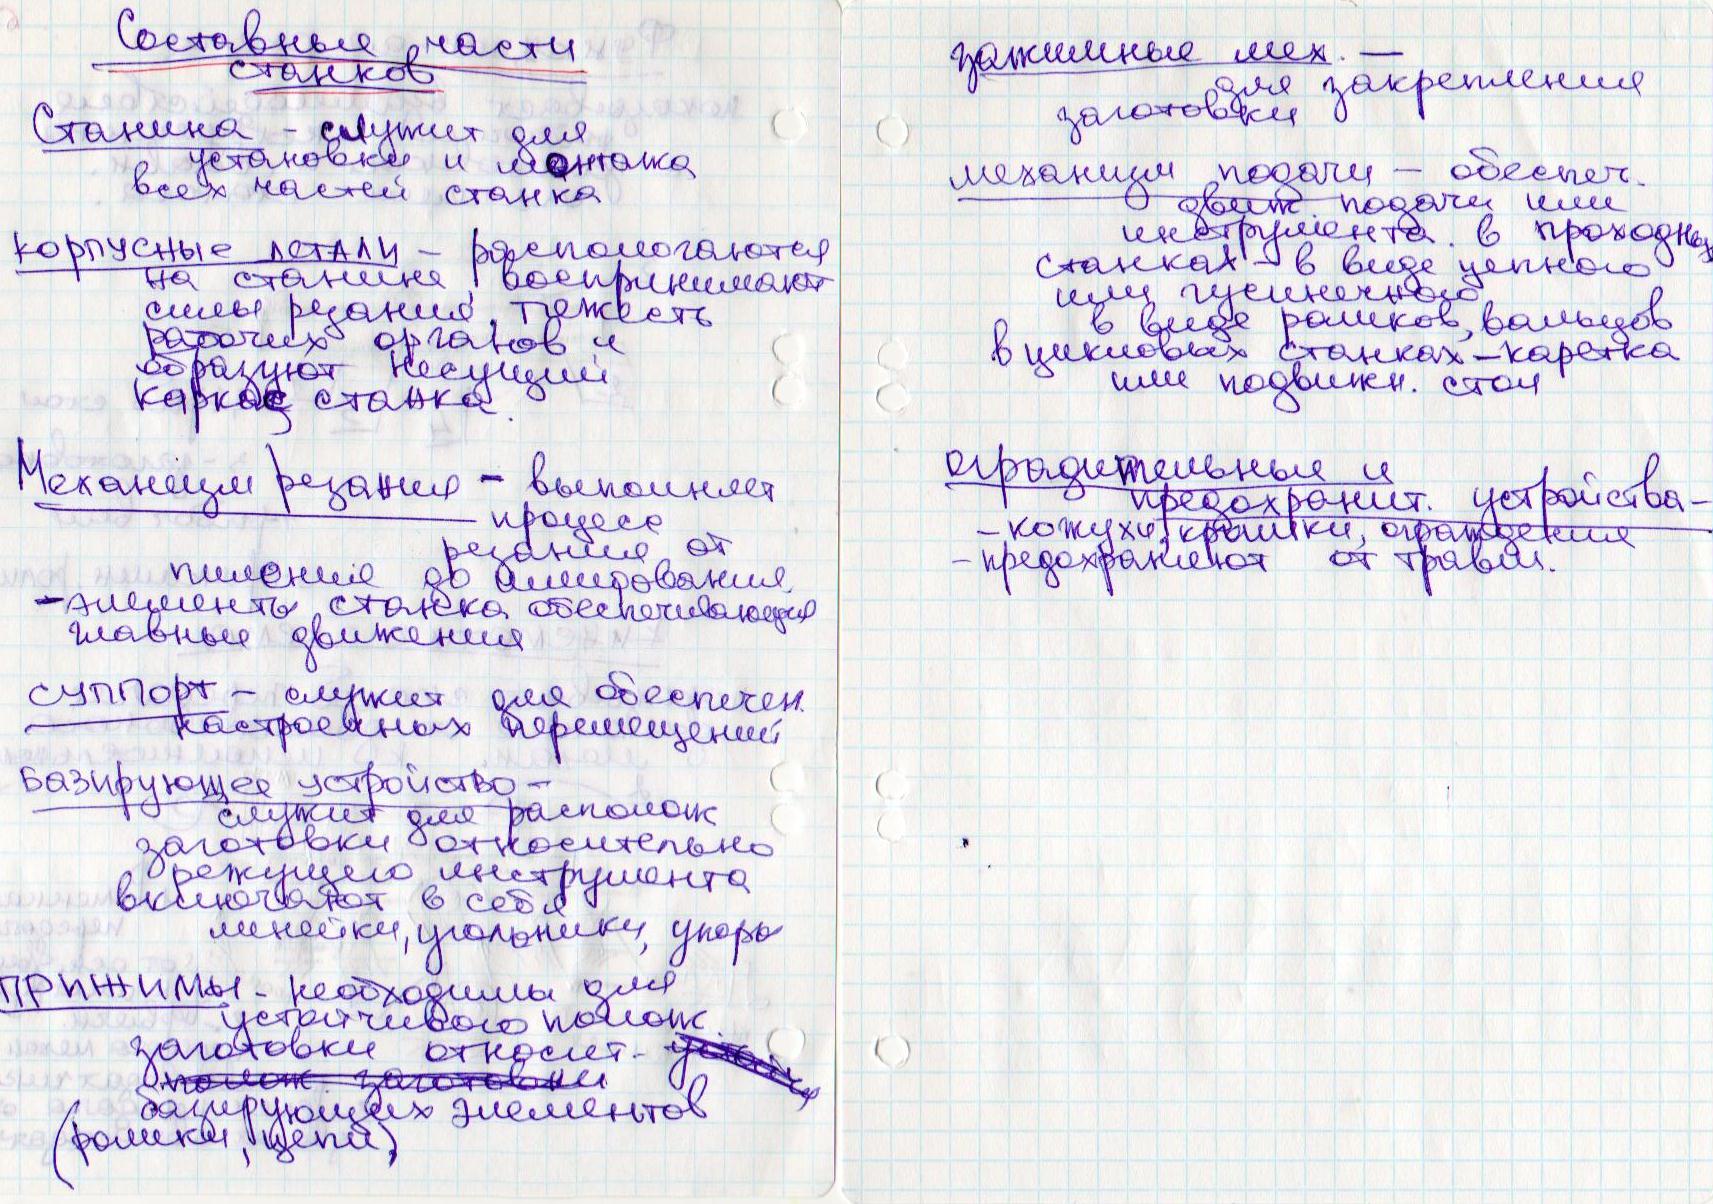 Составные части
станков
Станина - служит для
установки и монтажа
всех частей станка
корпусные детали - распологаются
на станине, воспринимают
силы резания, тяжесть
рабочих органов и
образуют несущий
каркас станка.
Механизм резания - выполняет
процесс
резания от
пиления до шлифования
- элементы станка обеспечивающие
главные движения
суппорт - служит для обеспечен.
настроечных перемещений
Базирующее устройство -
служит для располож
заготовки относительно
режущего инструмента
включают в себя
линейки, угольники, упоры
ПРИЖИМЫ - необходимы для
устойчивого полож.
заготовки относит.
полож заготовки
базирующих элементов
(ролики, цепи)
зажимные мех. —
для закрепления
заготовки
механизм подачи - обеспеч.
движ. подачи или
инструмента. в проходных
станках - в виде цепного
или гусеничного
в виде роликов, вальцов
в цикловых станках - каретка
или подвижн. стол
оградительные и
предохранит. устройства -
- кожухи, крышки, ограждения
- предохраняют от травм.